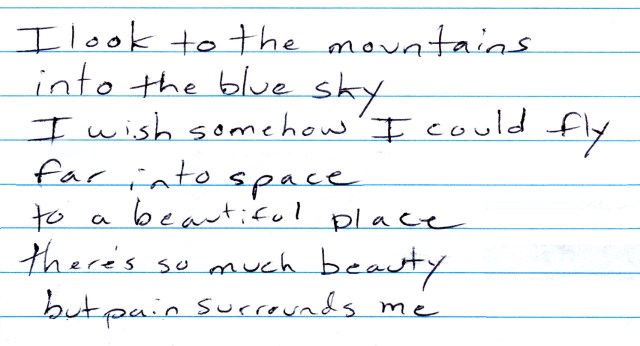 I look to the mountains
into the blue sky
I wish somehow I could fly
far into space
to a beautiful place
there's so much beauty
but pain surrounds me